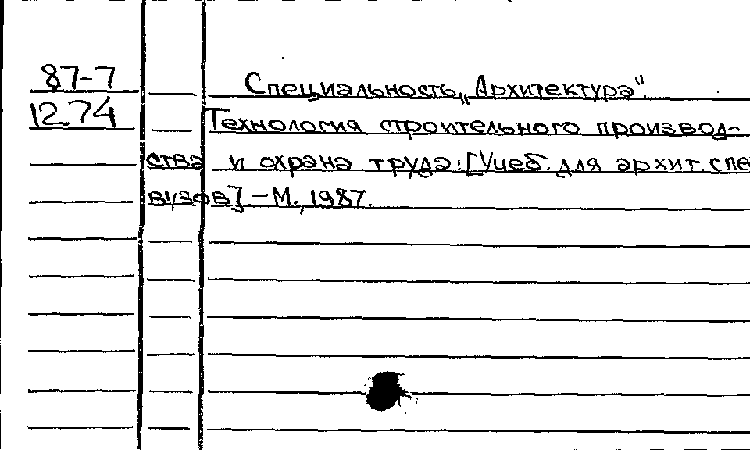 87-7 Специальность „Архитектура".
1274 Технология строительного производ-
ства и охрана труда: [Учеб. для архит. спе
вузов] – М., 1987.